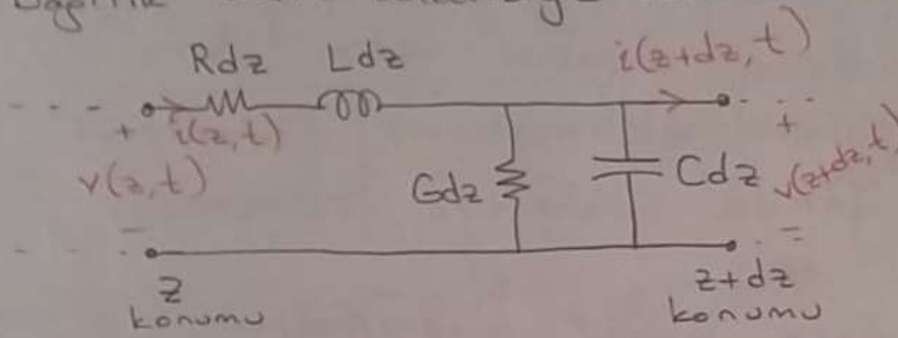 Rdz Ldz i(z+dz,t)
i(z,t)
+ +
v(z,t) Gdz Cdz v(z+dz,t)
- -
z z+dz
konumu konumu